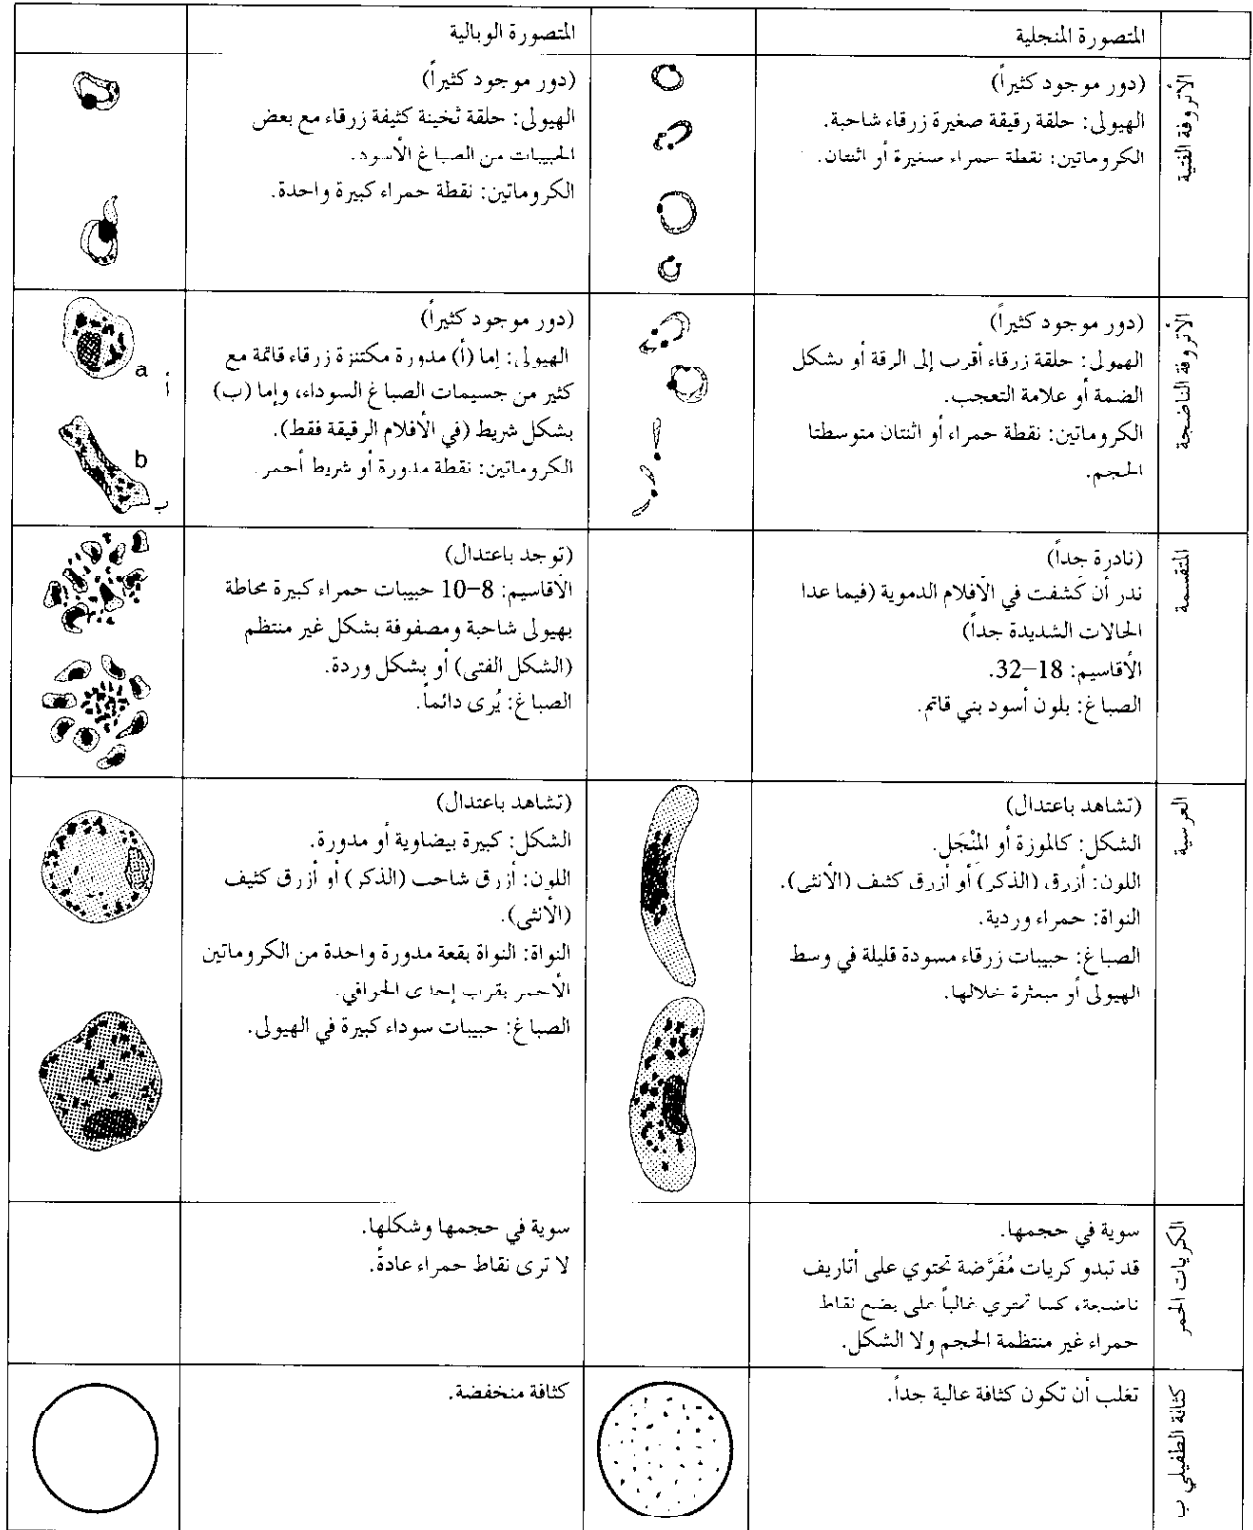 المتصورة المنجلية
المتصورة الوبالية
الأتروفة الفتية
(دور موجود كثيراً)
الهيولى: حلقة رقيقة صغيرة زرقاء شاحبة.
الكروماتين: نقطة حمراء صغيرة أو اثنتان.
(دور موجود كثيراً)
الهيولى: حلقة ثخينة كثيفة زرقاء مع بعض
الحبيبات من الصباغ الأسود.
الكروماتين: نقطة حمراء كبيرة واحدة.
الأتروفة الناضجة
(دور موجود كثيراً)
الهيولى: حلقة زرقاء أقرب إلى الرقة أو بشكل
الضمة أو علامة التعجب.
الكروماتين: نقطة حمراء أو اثنتان متوسطتا
الحجم.
(دور موجود كثيراً)
الهيولى: إما (أ) مدورة مكتنزة زرقاء قاتمة مع
كثير من جسيمات الصباغ السوداء، وإما (ب)
بشكل شريط (في الأفلام الرقيقة فقط).
الكروماتين: نقطة مدورة أو شريط أحمر.
a
أ
b
ب
المتقسمة
(نادرة جداً)
ندر أن كَشفت في الأفلام الدموية (فيما عدا
الحالات الشديدة جداً)
الأقاسيم: 18–32.
الصباغ: بلون أسود بني قاتم.
(توجد باعتدال)
الأقاسيم: 8–10 حبيبات حمراء كبيرة محاطة
بهيولى شاحبة ومصفوفة بشكل غير منتظم
(الشكل الفتي) أو بشكل وردة.
الصباغ: يُرى دائماً.
العرسية
(تشاهد باعتدال)
الشكل: كالموزة أو المِنْجَل.
اللون: أزرق (الذكر) أو أزرق كثيف (الأنثى).
النواة: حمراء وردية.
الصباغ: حبيبات زرقاء مسودة قليلة في وسط
الهيولى أو مبعثرة خلالها.
(تشاهد باعتدال)
الشكل: كبيرة بيضاوية أو مدورة.
اللون: أزرق شاحب (الذكر) أو أزرق كثيف
(الأنثى).
النواة: النواة بقعة مدورة واحدة من الكروماتين
الأحمر بقرب إحدى الحوافي.
الصباغ: حبيبات سوداء كبيرة في الهيولى.
الكريات الحمر
سوية في حجمها.
قد تبدو كريات مُفَرَّضة تحتوي على أتاريف
ناضجة، كما تحتوي غالباً على بضع نقاط
حمراء غير منتظمة الحجم ولا الشكل.
سوية في حجمها وشكلها.
لا ترى نقاط حمراء عادةً.
كثافة الطفيلي ب
تغلب أن تكون كثافة عالية جداً.
كثافة منخفضة.